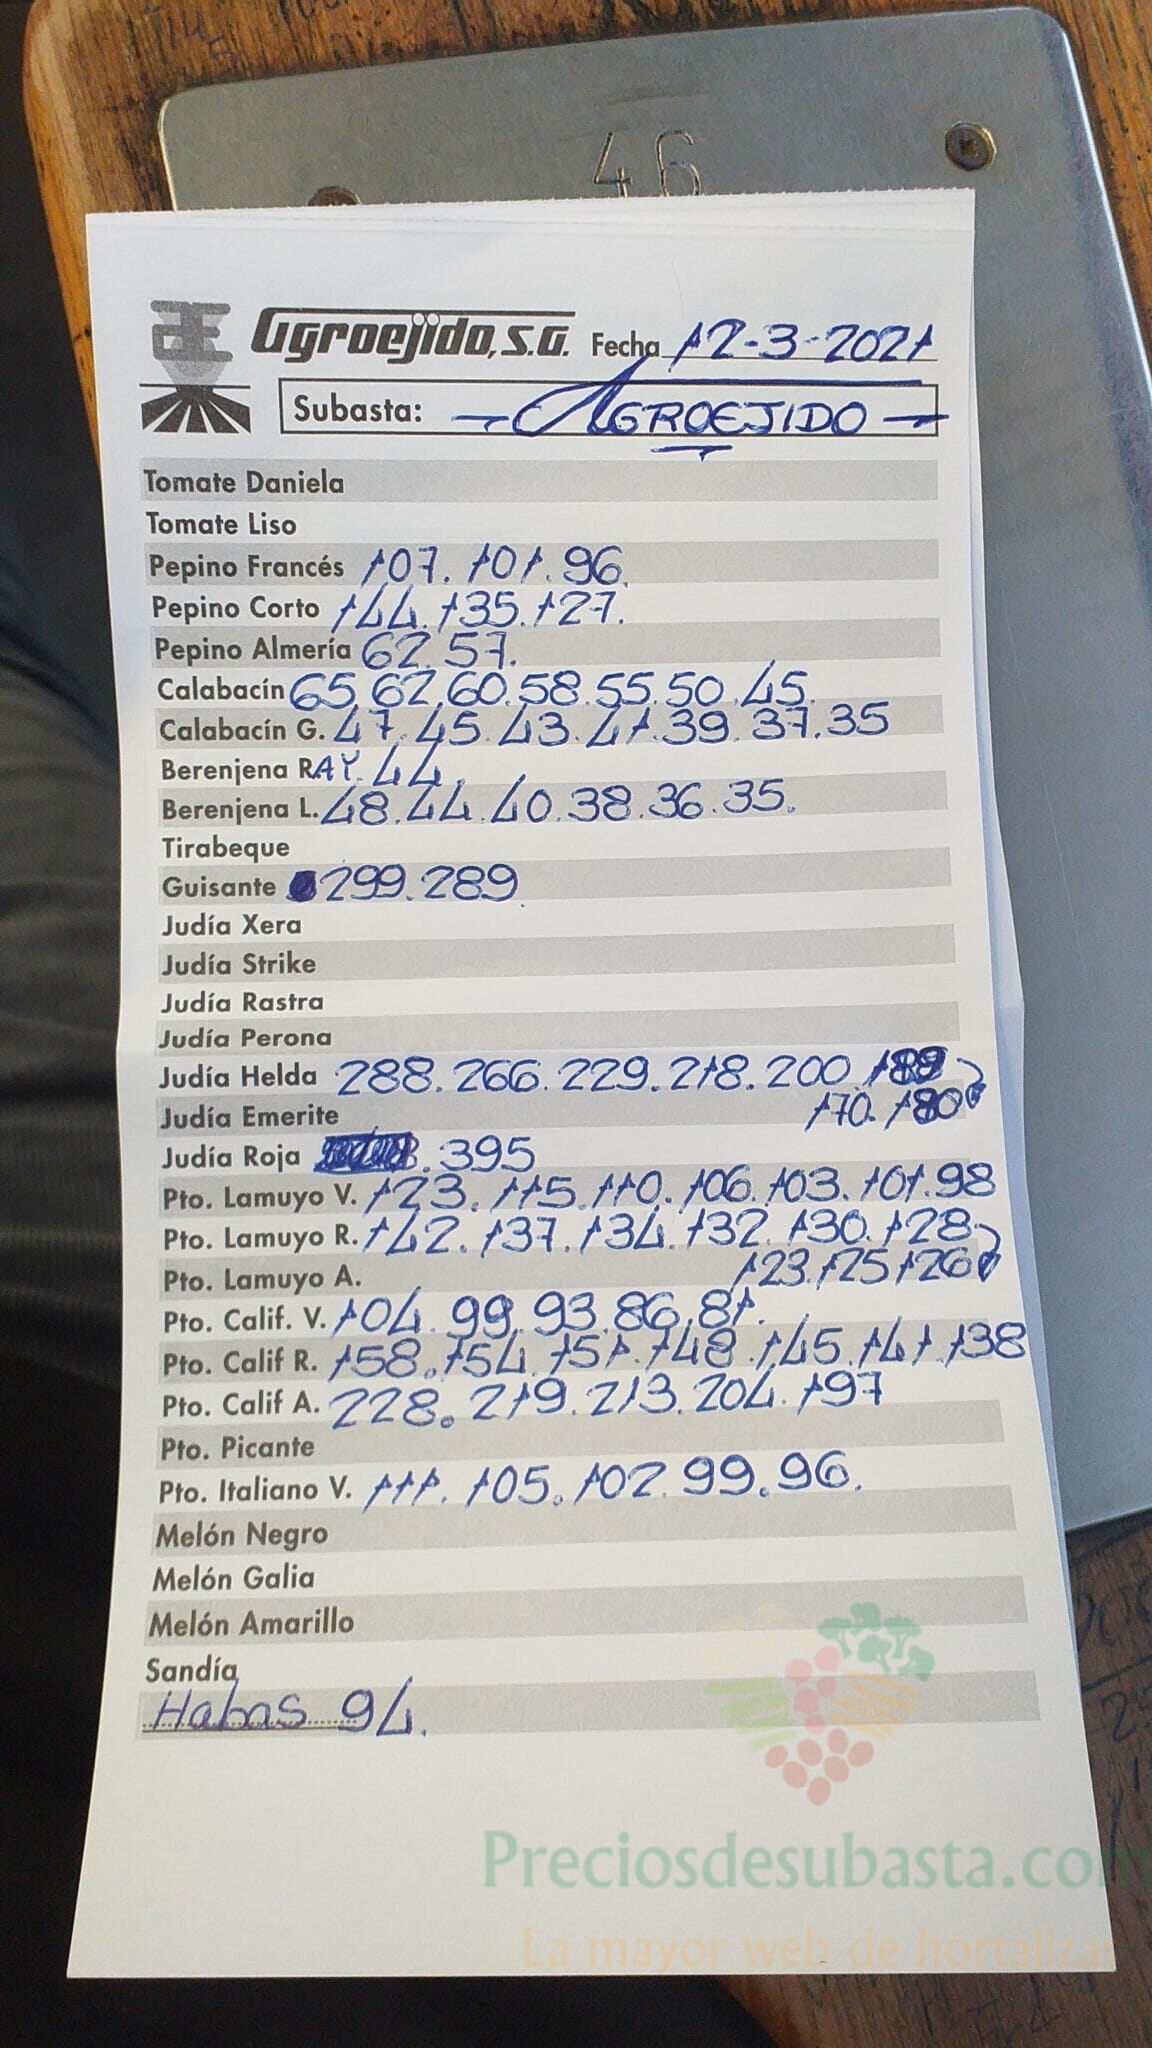 46
Agroejido, S.A. Fecha 12-3-2021
Subasta: - AGROEJIDO -
Tomate Daniela
Tomate Liso
Pepino Francés 107. 101. 96.
Pepino Corto 144. 135. 127.
Pepino Almería 62. 57.
Calabacín 65. 62. 60. 58. 55. 50. 45.
Calabacín G. 47. 45. 43. 41. 39. 37. 35
Berenjena RAY. 44
Berenjena L. 48. 44. 40. 38. 36. 35.
Tirabeque
Guisante 299. 289
Judía Xera
Judía Strike
Judía Rastra
Judía Perona
Judía Helda 288. 266. 229. 218. 200. 189
Judía Emerite 170. 180
Judía Roja . 395
Pto. Lamuyo V. 123. 115. 110. 106. 103. 101. 98
Pto. Lamuyo R. 142. 137. 134. 132. 130. 128
Pto. Lamuyo A. 123. 125 126
Pto. Calif. V. 104. 99. 93. 86. 81.
Pto. Calif R. 158. 154. 151. 148. 145. 141. 138
Pto. Calif A. 228. 219. 213. 204. 197
Pto. Picante
Pto. Italiano V. 111. 105. 102. 99. 96.
Melón Negro
Melón Galia
Melón Amarillo
Sandía
Habas 94.
Preciosdesubasta.com
La mayor web de hortalizas